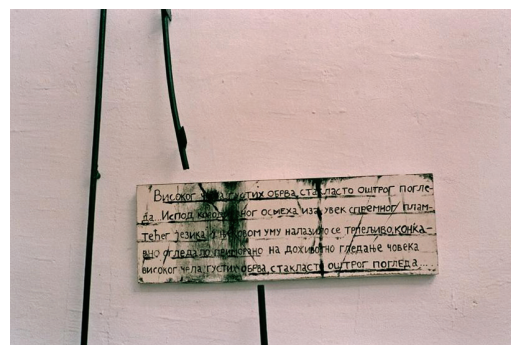 Високог чела, густих обрва, стакласто оштрог погле-
да. Испод осмеха, иза увек спремног плам-
тећег језика, у његовом уму налазило се трпељиво, конка-
вно огледало приморано на доживотно гледање човека
високог чела, густих обрва, стакласто оштрог погледа...